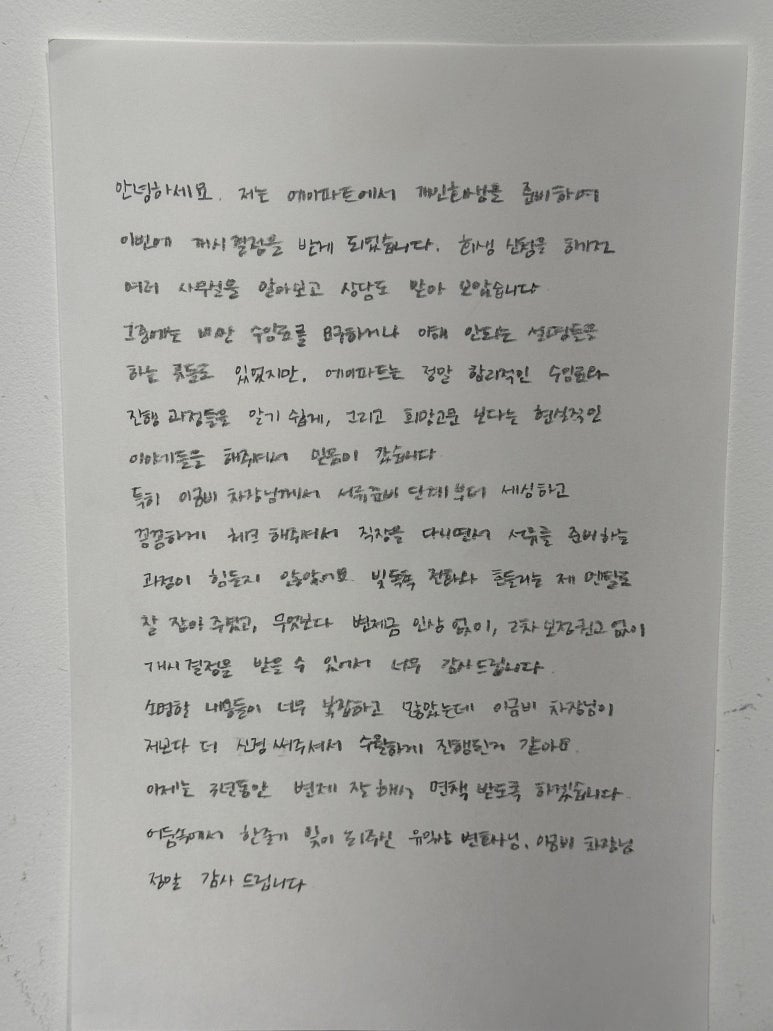 안녕하세요. 저는 에이파트에서 개인회생을 준비하여
이번에 개시결정을 받게 되었습니다. 회생 신청을 하기전
여러 사무실을 알아보고 상담도 받아 보았습니다
그중에는 비싼 수임료를 요구하거나 이해 안되는 설명들을
하는 곳들도 있었지만, 에이파트는 정말 합리적인 수임료와
진행 과정들을 알기 쉽게, 그리고 희망고문 보다는 현실적인
이야기들을 해주셔서 믿음이 갔습니다
특히 이금비 차장님께서 서류준비 단계부터 세심하고
꼼꼼하게 체크 해주셔서 직장을 다니면서 서류를 준비하는
과정이 힘들지 않았어요. 빚독촉 전화와 흔들리는 제 멘탈도
잘 잡아 주셨고, 무엇보다 변제금 인상 없이, 2차 보정권고 없이
개시결정을 받을 수 있어서 너무 감사드립니다
소명할 내용들이 너무 복잡하고 많았는데 이금비 차장님이
저보다 더 신경 써주셔서 수월하게 진행된거 같아요.
이제는 3년동안 변제 잘 해서 면책 받도록 하겠습니다.
어둠속에서 한줄기 빛이 되주신 변호사님, 이금비 차장님
정말 감사 드립니다